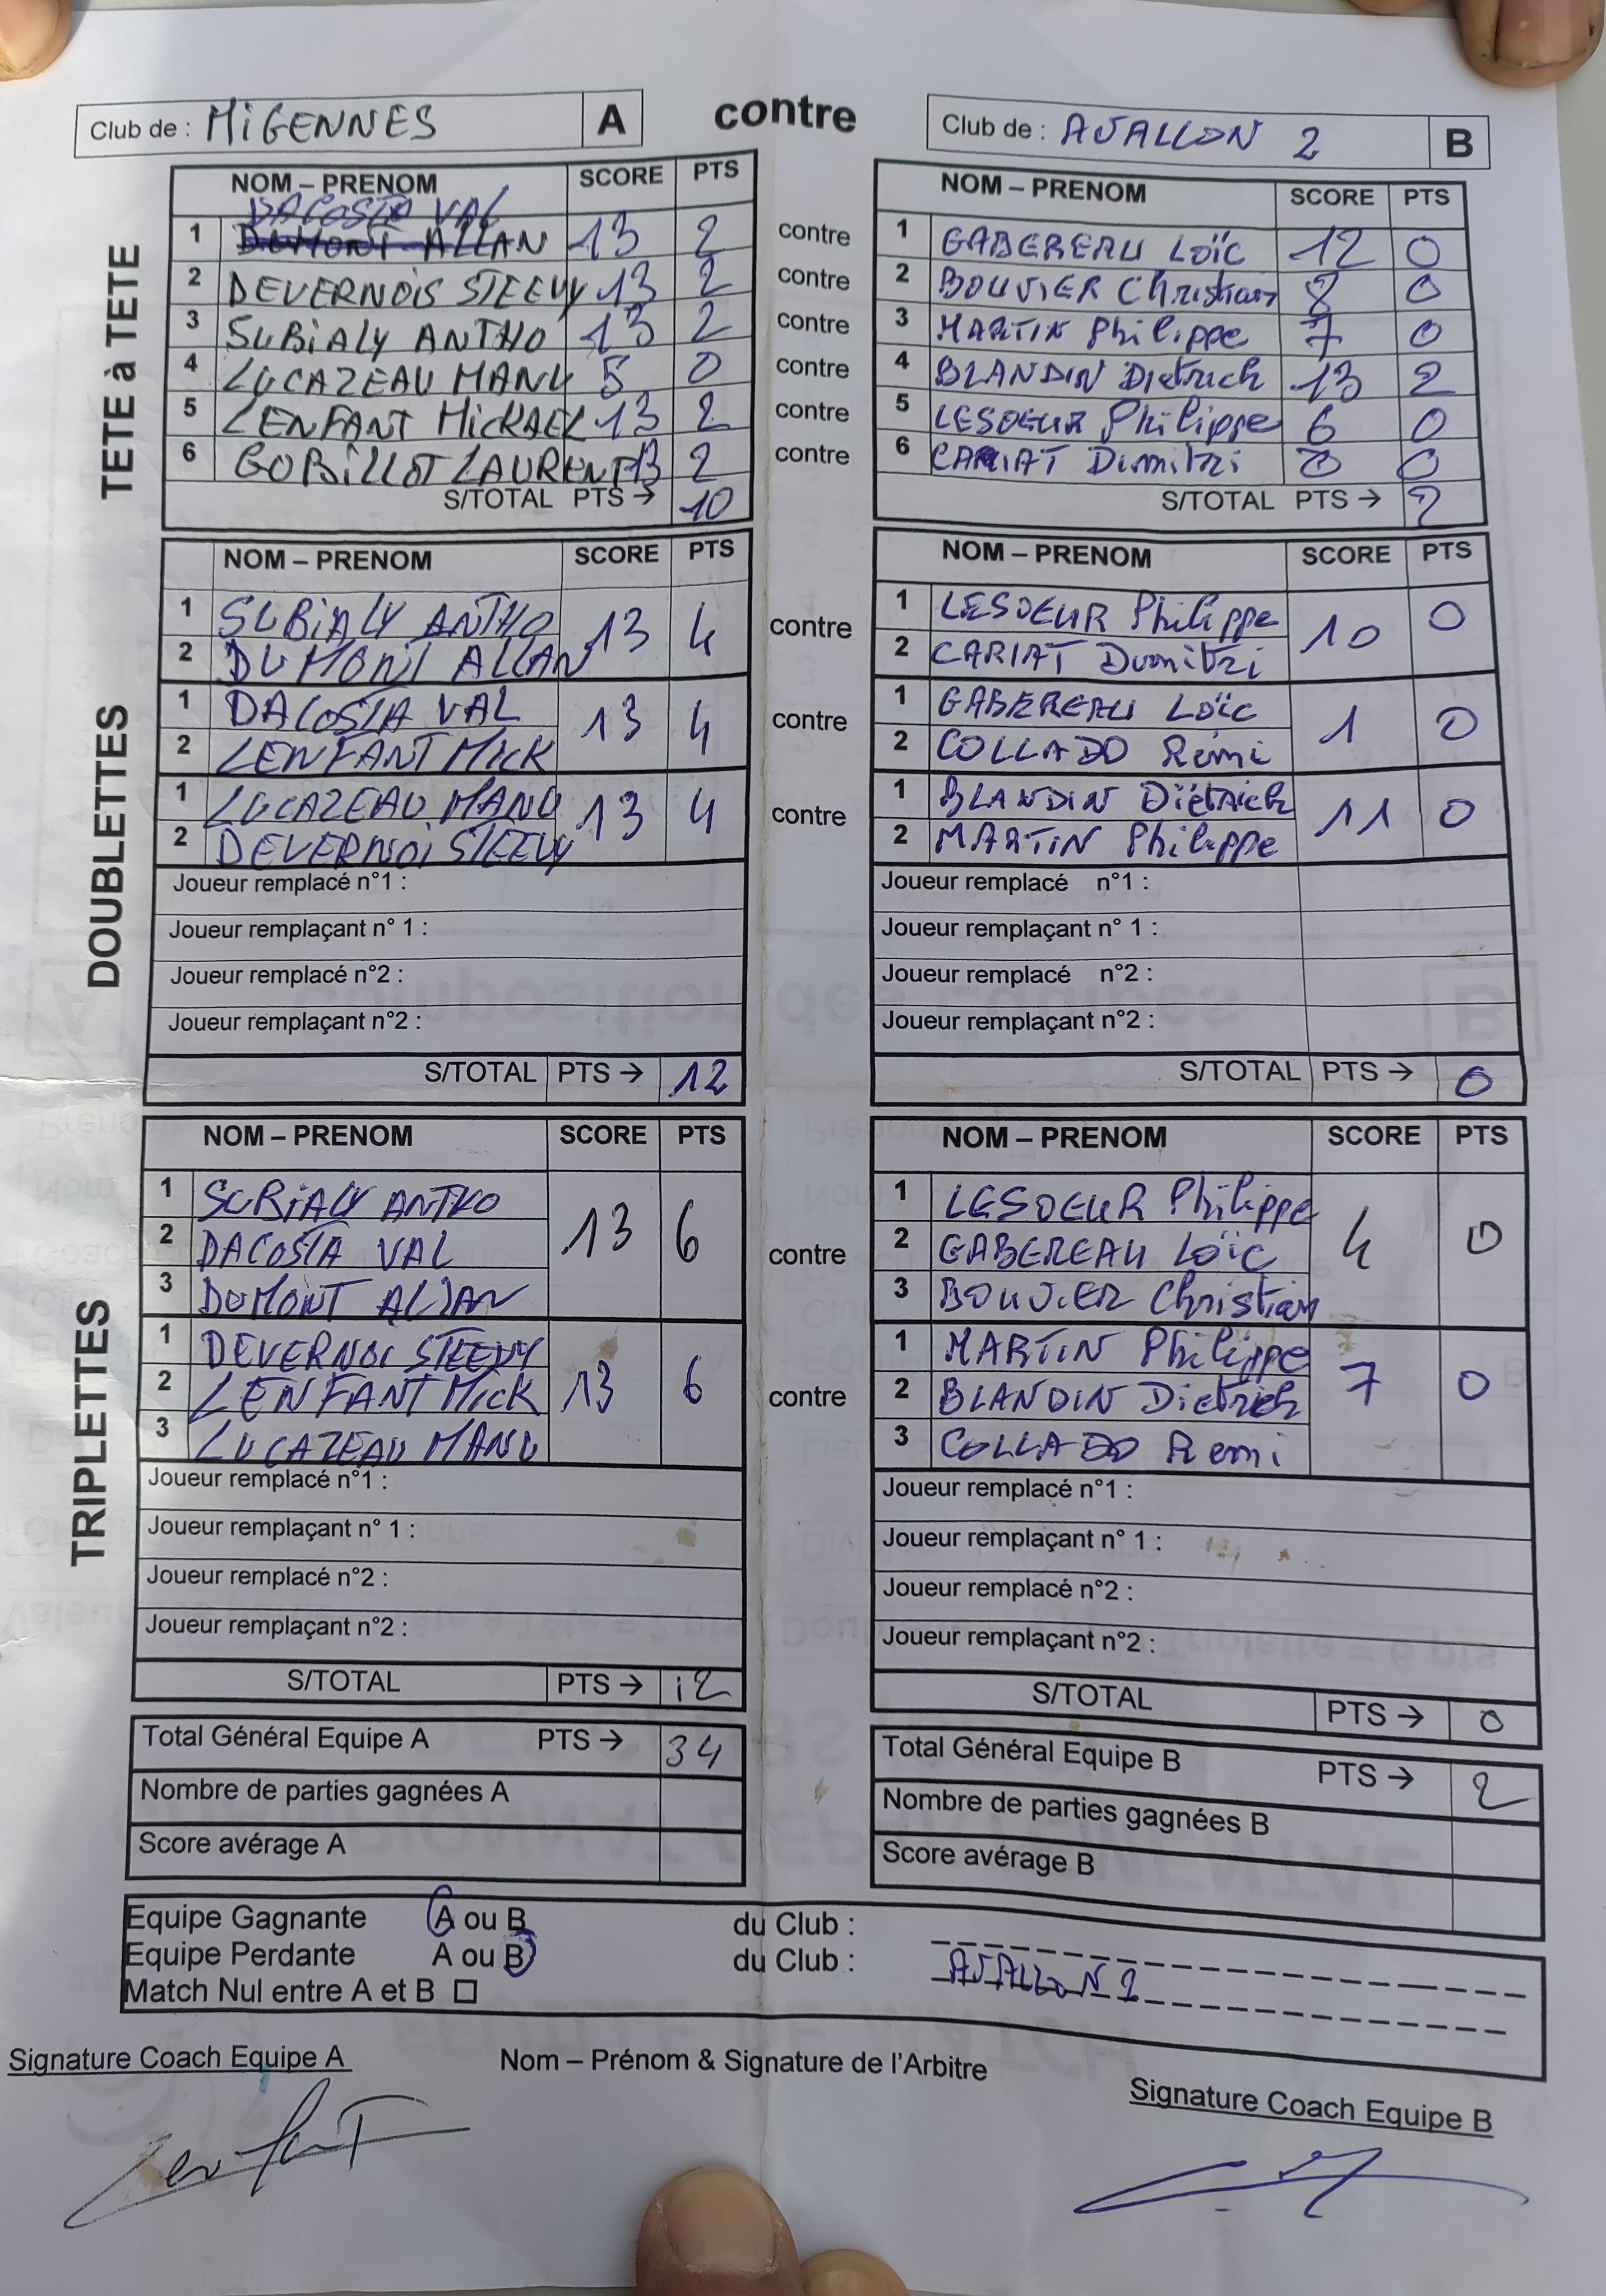 Club de : MiGENNES A contre Club de : AVALLON 2 B
TETE à TETE
NOM – PRENOM SCORE PTS NOM – PRENOM SCORE PTS
DACOSTA VAL
1 DUMONT ALLAN 13 2 contre 1 GABEREAU Loïc 12 0
2 DEVERNOIS STEEVY 13 2 contre 2 BOUVIER Christian 8 0
3 SUBiALY ANTHO 13 2 contre 3 MARTIN Philippe 7 0
4 LUCAZEAU MANU 5 0 contre 4 BLANDIN Dietrich 13 2
5 LENFANT MiCKAEL 13 2 contre 5 LESOEUR Philippe 6 0
6 GOBiLLOT LAURENT 13 2 contre 6 CARIAT Dimitri 0
S/TOTAL PTS → 10 S/TOTAL PTS → 2
DOUBLETTES
NOM – PRENOM SCORE PTS NOM – PRENOM SCORE PTS
1 SUBiALY ANTHO 13 4 contre 1 LESOEUR Philippe 10 0
2 DUMONT ALLAN 2 CARIAT Dimitri
1 DACOSTA VAL 13 4 contre 1 GABEREAU Loïc 1 0
2 LENFANT MiCK 2 COLLADO Remi
1 LUCAZEAU MANU 13 4 contre 1 BLANDIN Dietrich 11 0
2 DEVERNOiS STEEVY 2 MARTIN Philippe
Joueur remplacé n°1 : Joueur remplacé n°1 :
Joueur remplaçant n° 1 : Joueur remplaçant n° 1 :
Joueur remplacé n°2 : Joueur remplacé n°2 :
Joueur remplaçant n°2 : Joueur remplaçant n°2 :
S/TOTAL PTS → 12 S/TOTAL PTS → 0
TRIPLETTES
NOM – PRENOM SCORE PTS NOM – PRENOM SCORE PTS
1 SUBiALY ANTHO 13 6 contre 1 LESOEUR Philippe 4 0
2 DACOSTA VAL 2 GABEREAU Loïc
3 DUMONT ALLAN 3 BOUVIER Christian
1 DEVERNOi STEEVY 13 6 contre 1 MARTIN Philippe 7 0
2 LENFANT MiCK 2 BLANDIN Dietrich
3 LUCAZEAU MANU 3 COLLADO Remi
Joueur remplacé n°1 : Joueur remplacé n°1 :
Joueur remplaçant n° 1 : Joueur remplaçant n° 1 :
Joueur remplacé n°2 : Joueur remplacé n°2 :
Joueur remplaçant n°2 : Joueur remplaçant n°2 :
S/TOTAL PTS → 12 S/TOTAL PTS → 0
Total Général Equipe A PTS → 34 Total Général Equipe B PTS → 2
Nombre de parties gagnées A Nombre de parties gagnées B
Score avérage A Score avérage B
Equipe Gagnante A ou B du Club :
Equipe Perdante A ou B du Club : AVALLON 2
Match Nul entre A et B ☐
Signature Coach Equipe A Nom – Prénom & Signature de l'Arbitre Signature Coach Equipe B